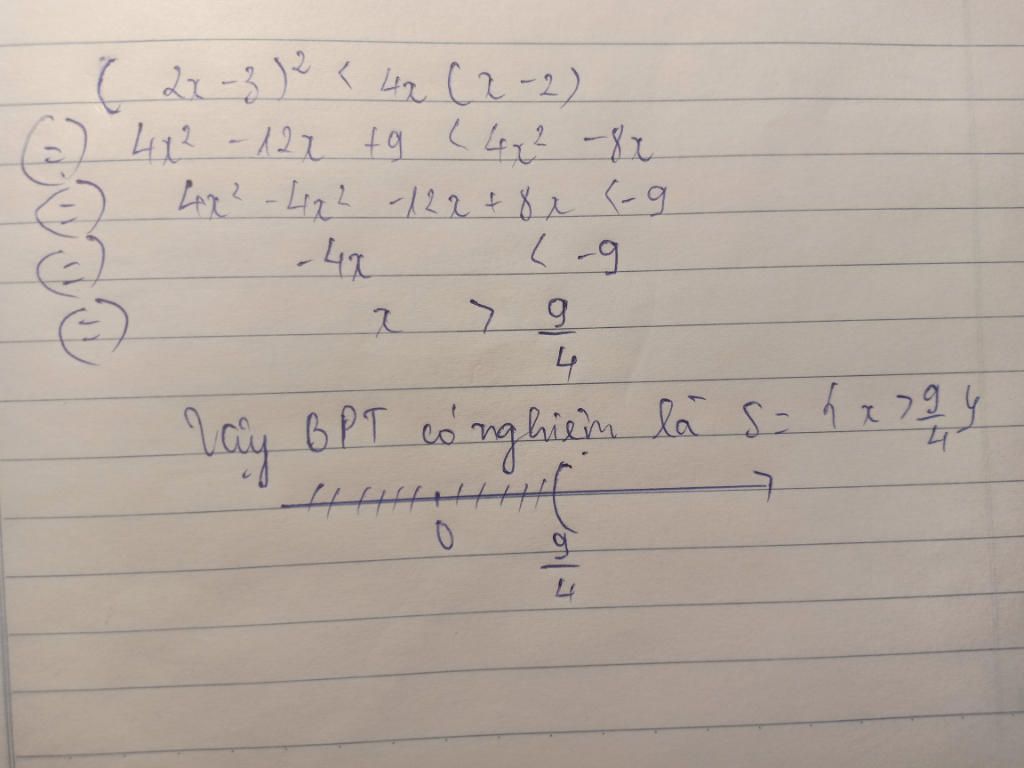 ( 2x - 3 )² < 4x ( x - 2 )
(=) 4x² - 12x + 9 < 4x² - 8x
(=) 4x² - 4x² - 12x + 8x < -9
(=) -4x < -9
(=) x > 9/4
Vậy BPT có nghiệm là S = { x > 9/4 }
0 9/4